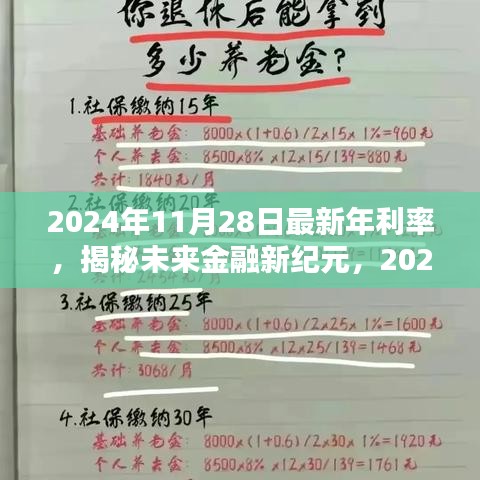 你退休后能拿到
多少养老金?
1.社保缴纳15年
基础养老金: 8000×(1+0.6)/2×15×1%=960元
个人养老金: 8500×8%×12×15/139=880元
共计: 1840元/月
2.社保缴纳20年
2024年11月28日最新年利率
，揭秘未来金融新纪元，202
3.社保缴纳25年
基础养老金: 8000×(1+0.6)/2×25×1%=1600元
个人养老金: 8500×8%×12×25/139=1468元
共计: 3068/月
4.社保缴纳30年
基础养老金: 8000×(1+0.6)/2×30×1%=1920元
个人养老金: 8500×8%×12×30/139=1761元